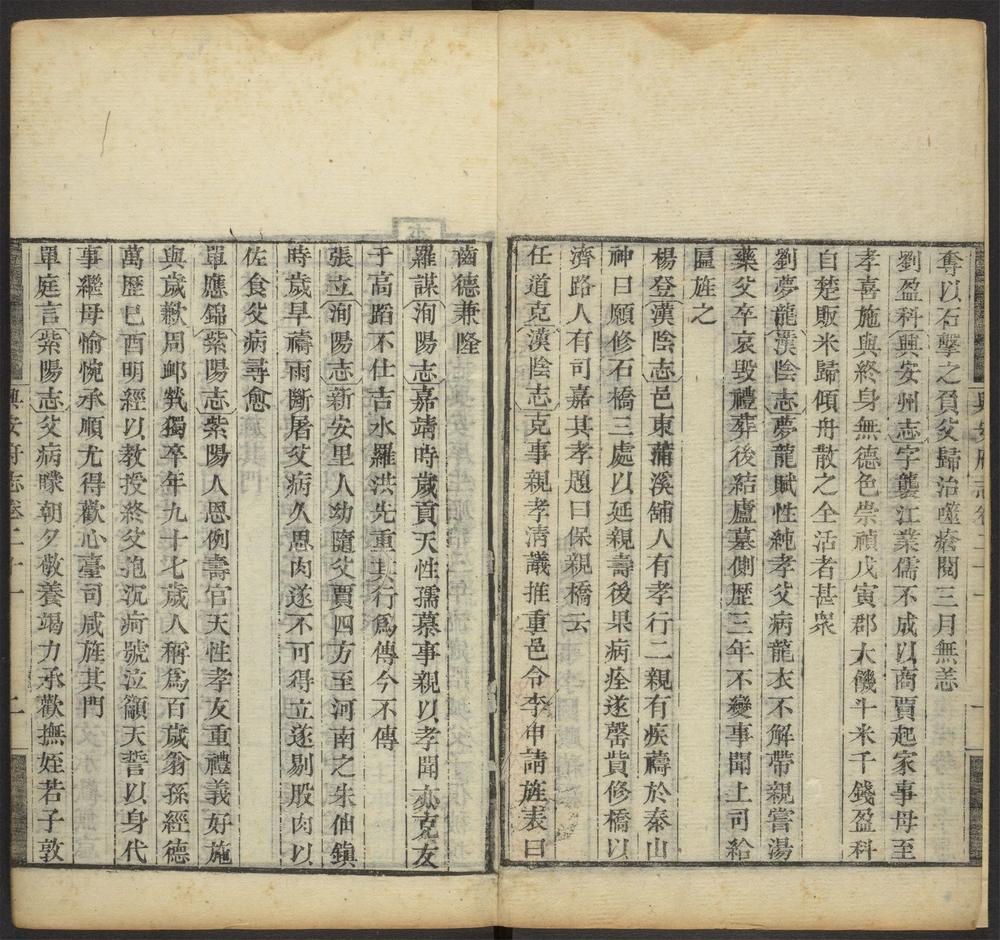 奪以石擊之負父歸治噬瘡閱三月無恙
劉盈科興安州志字襲江業儒不成以商賈起家事母至
孝喜施與終身無德色崇禎戊寅郡大饑斗米千錢盈科
自楚販米歸傾舟散之全活者甚衆
劉夢龍漢陰志夢龍賦性純孝父病龍衣不解帶親嘗湯
藥父卒哀毀禮葬後結廬墓側歷三年不變事聞上司給
匾旌之
楊登漢陰志邑東蒲溪舖人有孝行二親有疾禱於泰山
神曰願修石橋三處以延親壽後果病痊遂罄貲修橋以
濟路人有司嘉其孝題曰保親橋云
任道克漢陰志克事親孝清議推重邑令李申請旌表曰
齒德兼隆
羅謀洵陽志嘉靖時歲貢天性孺慕事親以孝聞亦克友
于高蹈不仕吉水羅洪先重其行為傳今不傳
張立洵陽志新安里人幼隨父賈四方至河南之朱仙鎮
時歲旱禱雨斷屠父病久思肉遂不可得立遂剔股肉以
佐食父病尋愈
單應錦紫陽志紫陽人恩例壽官天性孝友重禮義好施
與歲歉周邺煢獨卒年九十七歲人稱為百歲翁孫經德
萬歷巳酉明經以教授終父抱沉疴號泣籲天誓以身代
事繼母愉惋承順尤得歡心臺司咸旌其門
單庭言紫陽志父病矇朝夕敬養竭力承歡撫姪若子敦
興安府志卷二十一
二